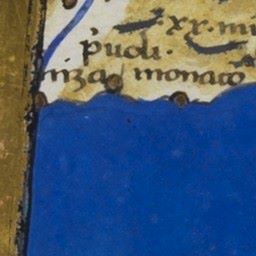 xx. mi
puoli.
niza monacō